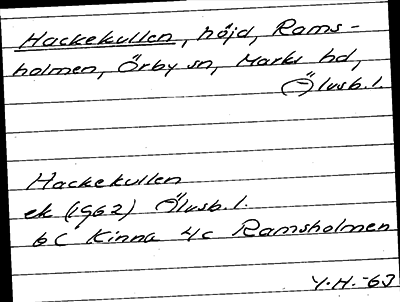 Hackekullen, höjd, Rams-
holmen, Örby sn, Marks hd,
Älvsb. l.
Hackekullen
ek (1962) Älvsb. l.
6C Kinna 4c Ramsholmen
Y.H. -63